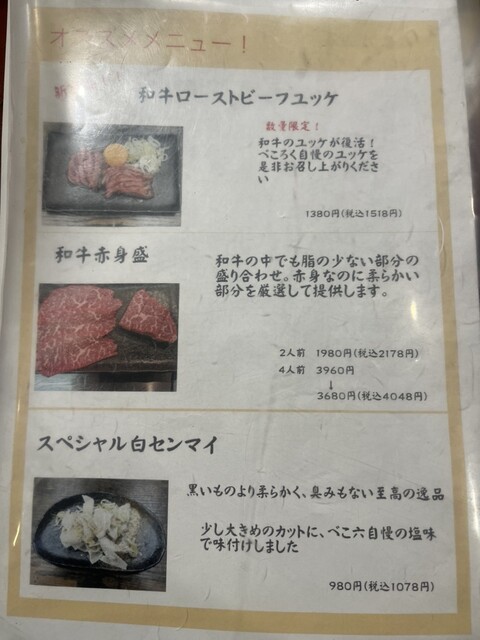 オススメメニュー！
新
和牛ローストビーフユッケ
数量限定！
和牛のユッケが復活！
べころく自慢のユッケを
是非お召し上がりくださ
い
1380円(税込1518円)
和牛赤身盛
和牛の中でも脂の少ない部分の
盛り合わせ。赤身なのに柔らかい
部分を厳選して提供します。
2人前 1980円(税込2178円)
4人前 3960円
↓
3680円(税込4048円)
スペシャル白センマイ
黒いものより柔らかく、臭みもない至高の逸品
少し大きめのカットに、べこ六自慢の塩味
で味付けしました
980円(税込1078円)